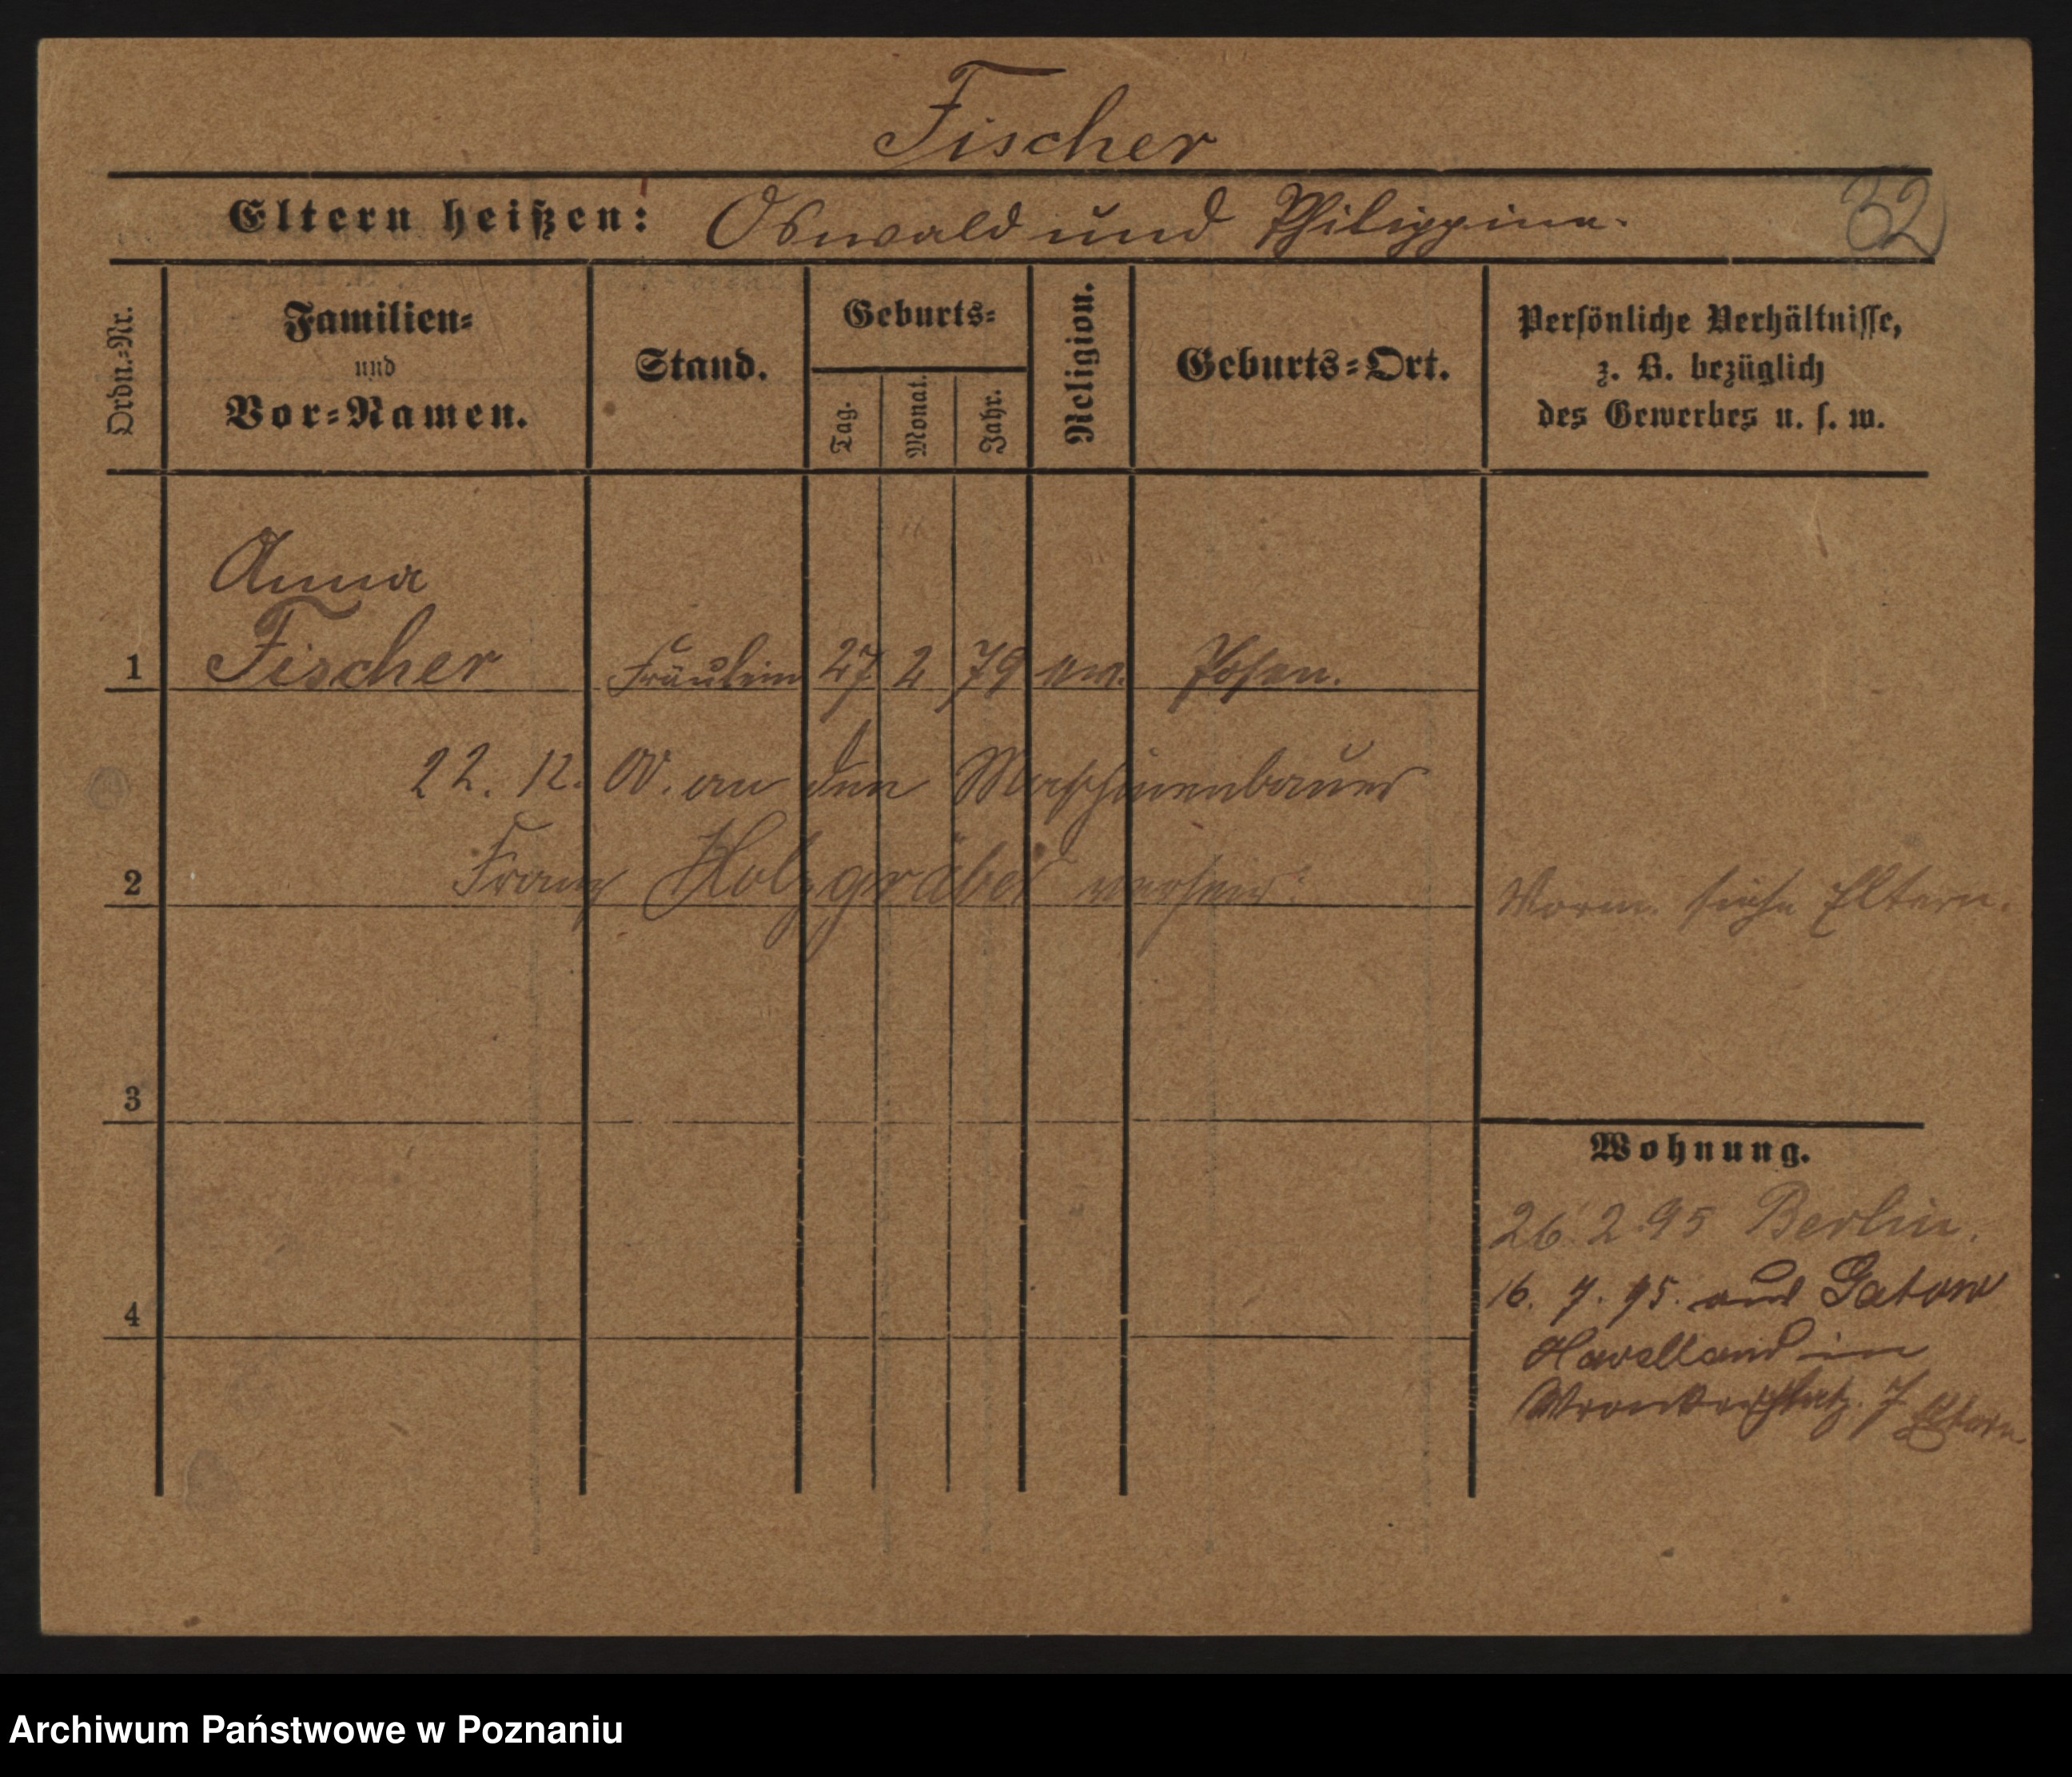 Fischer
Eltern heißen: Oswald und Philippine.
32
Ordn.-Nr.
Familien-
und
Vor-Namen.
Stand.
Geburts-
Tag.
Monat.
Jahr.
Religion.
Geburts-Ort.
Persönliche Verhältnisse,
z. B. bezüglich
des Gewerbes u. s. w.
Anna
1 Fischer Fräulein 27 2 79 ev. Posen.
22. 12. 00. an den Maschinenbauer
2 Franz Holzgräber verheir.
Vorm. siehe Eltern.
3
Wohnung.
26. 2. 95 Berlin.
16. 7. 95. aus Gatow
4
Havelland in
Wronkerplatz. 7 Eltern
Archiwum Państwowe w Poznaniu